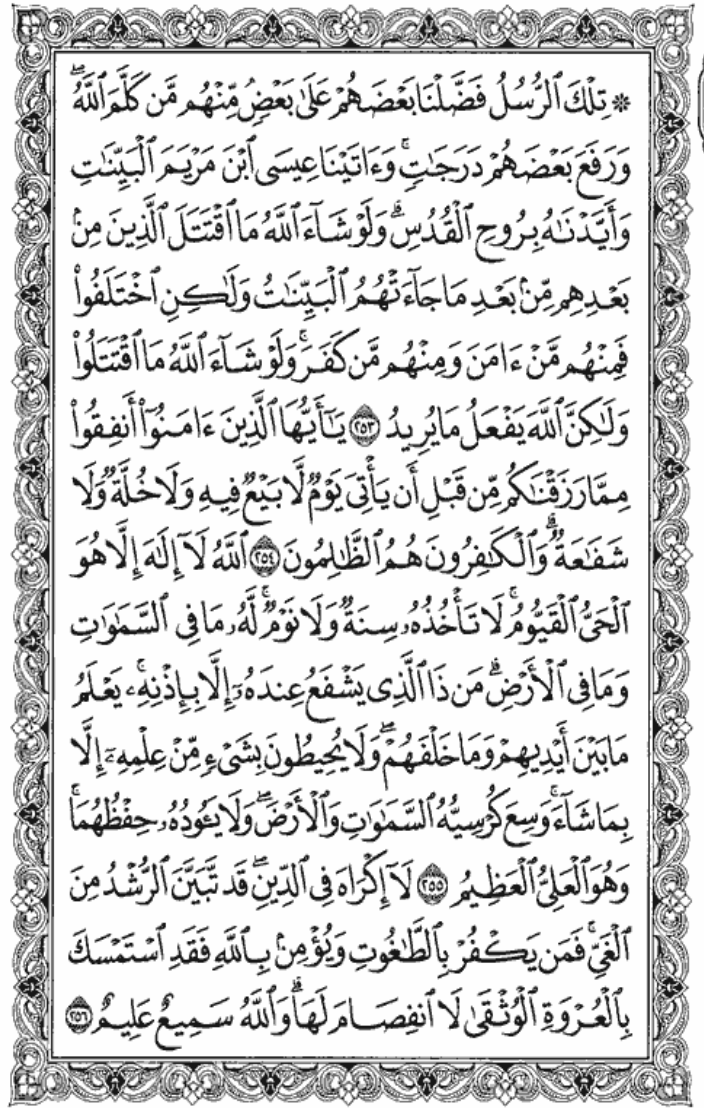 ۞ تِلْكَ ٱلرُّسُلُ فَضَّلْنَا بَعْضَهُمْ عَلَىٰ بَعْضٍ مِّنْهُم مَّن كَلَّمَ ٱللَّهُ ۖ
وَرَفَعَ بَعْضَهُمْ دَرَجَٰتٍ ۚ وَءَاتَيْنَا عِيسَى ٱبْنَ مَرْيَمَ ٱلْبَيِّنَٰتِ
وَأَيَّدْنَٰهُ بِرُوحِ ٱلْقُدُسِ ۗ وَلَوْ شَآءَ ٱللَّهُ مَا ٱقْتَتَلَ ٱلَّذِينَ مِنۢ
بَعْدِهِم مِّنۢ بَعْدِ مَا جَآءَتْهُمُ ٱلْبَيِّنَٰتُ وَلَٰكِنِ ٱخْتَلَفُوا۟
فَمِنْهُم مَّنْ ءَامَنَ وَمِنْهُم مَّن كَفَرَ ۚ وَلَوْ شَآءَ ٱللَّهُ مَا ٱقْتَتَلُوا۟
وَلَٰكِنَّ ٱللَّهَ يَفْعَلُ مَا يُرِيدُ ٢٥٣ يَٰٓأَيُّهَا ٱلَّذِينَ ءَامَنُوٓا۟ أَنفِقُوا۟
مِمَّا رَزَقْنَٰكُم مِّن قَبْلِ أَن يَأْتِىَ يَوْمٌ لَّا بَيْعٌ فِيهِ وَلَا خُلَّةٌ وَلَا
شَفَٰعَةٌ ۗ وَٱلْكَٰفِرُونَ هُمُ ٱلظَّٰلِمُونَ ٢٥٤ ٱللَّهُ لَآ إِلَٰهَ إِلَّا هُوَ
ٱلْحَىُّ ٱلْقَيُّومُ ۚ لَا تَأْخُذُهُۥ سِنَةٌ وَلَا نَوْمٌ ۚ لَّهُۥ مَا فِى ٱلسَّمَٰوَٰتِ
وَمَا فِى ٱلْأَرْضِ ۗ مَن ذَا ٱلَّذِى يَشْفَعُ عِندَهُۥٓ إِلَّا بِإِذْنِهِۦ ۚ يَعْلَمُ
مَا بَيْنَ أَيْدِيهِمْ وَمَا خَلْفَهُمْ ۖ وَلَا يُحِيطُونَ بِشَىْءٍ مِّنْ عِلْمِهِۦٓ إِلَّا
بِمَا شَآءَ ۚ وَسِعَ كُرْسِيُّهُ ٱلسَّمَٰوَٰتِ وَٱلْأَرْضَ ۖ وَلَا يَـُٔودُهُۥ حِفْظُهُمَا ۚ
وَهُوَ ٱلْعَلِىُّ ٱلْعَظِيمُ ٢٥٥ لَآ إِكْرَاهَ فِى ٱلدِّينِ ۖ قَد تَّبَيَّنَ ٱلرُّشْدُ مِنَ
ٱلْغَىِّ ۚ فَمَن يَكْفُرْ بِٱلطَّٰغُوتِ وَيُؤْمِنۢ بِٱللَّهِ فَقَدِ ٱسْتَمْسَكَ
بِٱلْعُرْوَةِ ٱلْوُثْقَىٰ لَا ٱنفِصَامَ لَهَا ۗ وَٱللَّهُ سَمِيعٌ عَلِيمٌ ٢٥٦